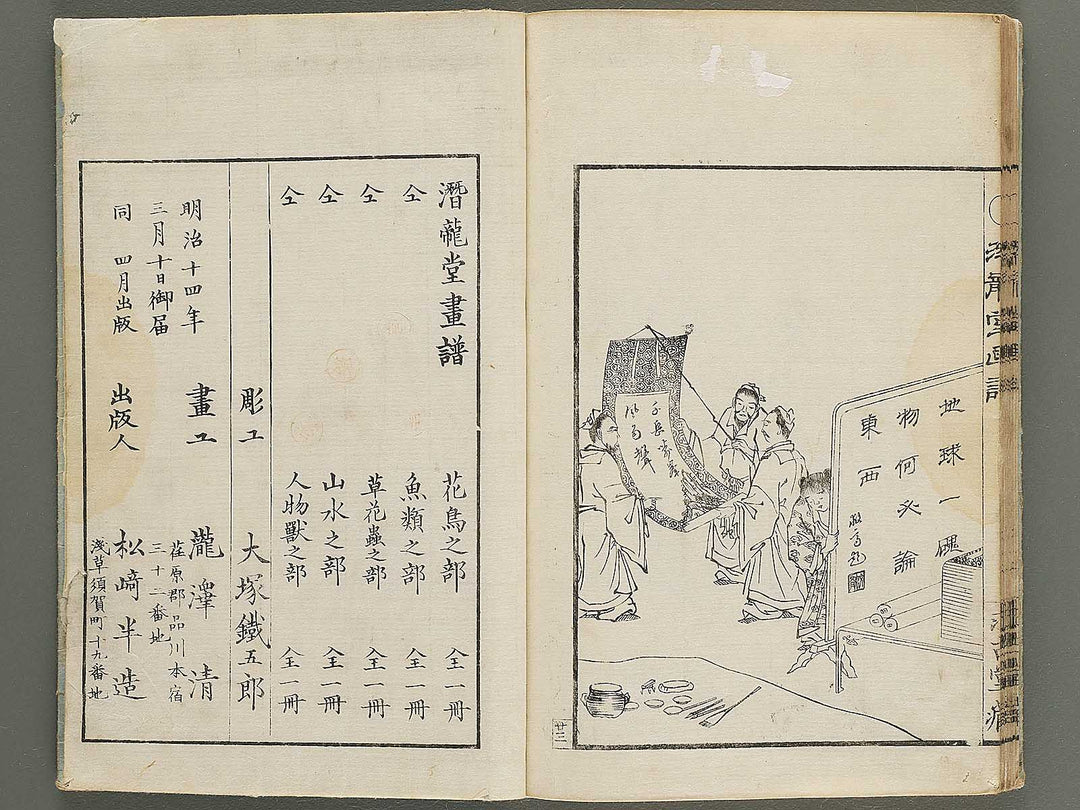 地球一硯
物何必論
東西
廿三
潛龍堂畫譜
花鳥之部 全一冊
仝 魚類之部 全一冊
仝 草花蟲之部 全一冊
仝 山水之部 全一冊
仝 人物獸之部 全一冊
彫工 大塚鐵五郎
明治十四年
三月十日御届
同 四月出版
畫工 瀧澤清
荏原郡品川本宿
三十二番地
出版人 松﨑半造
淺草須賀町十九番地